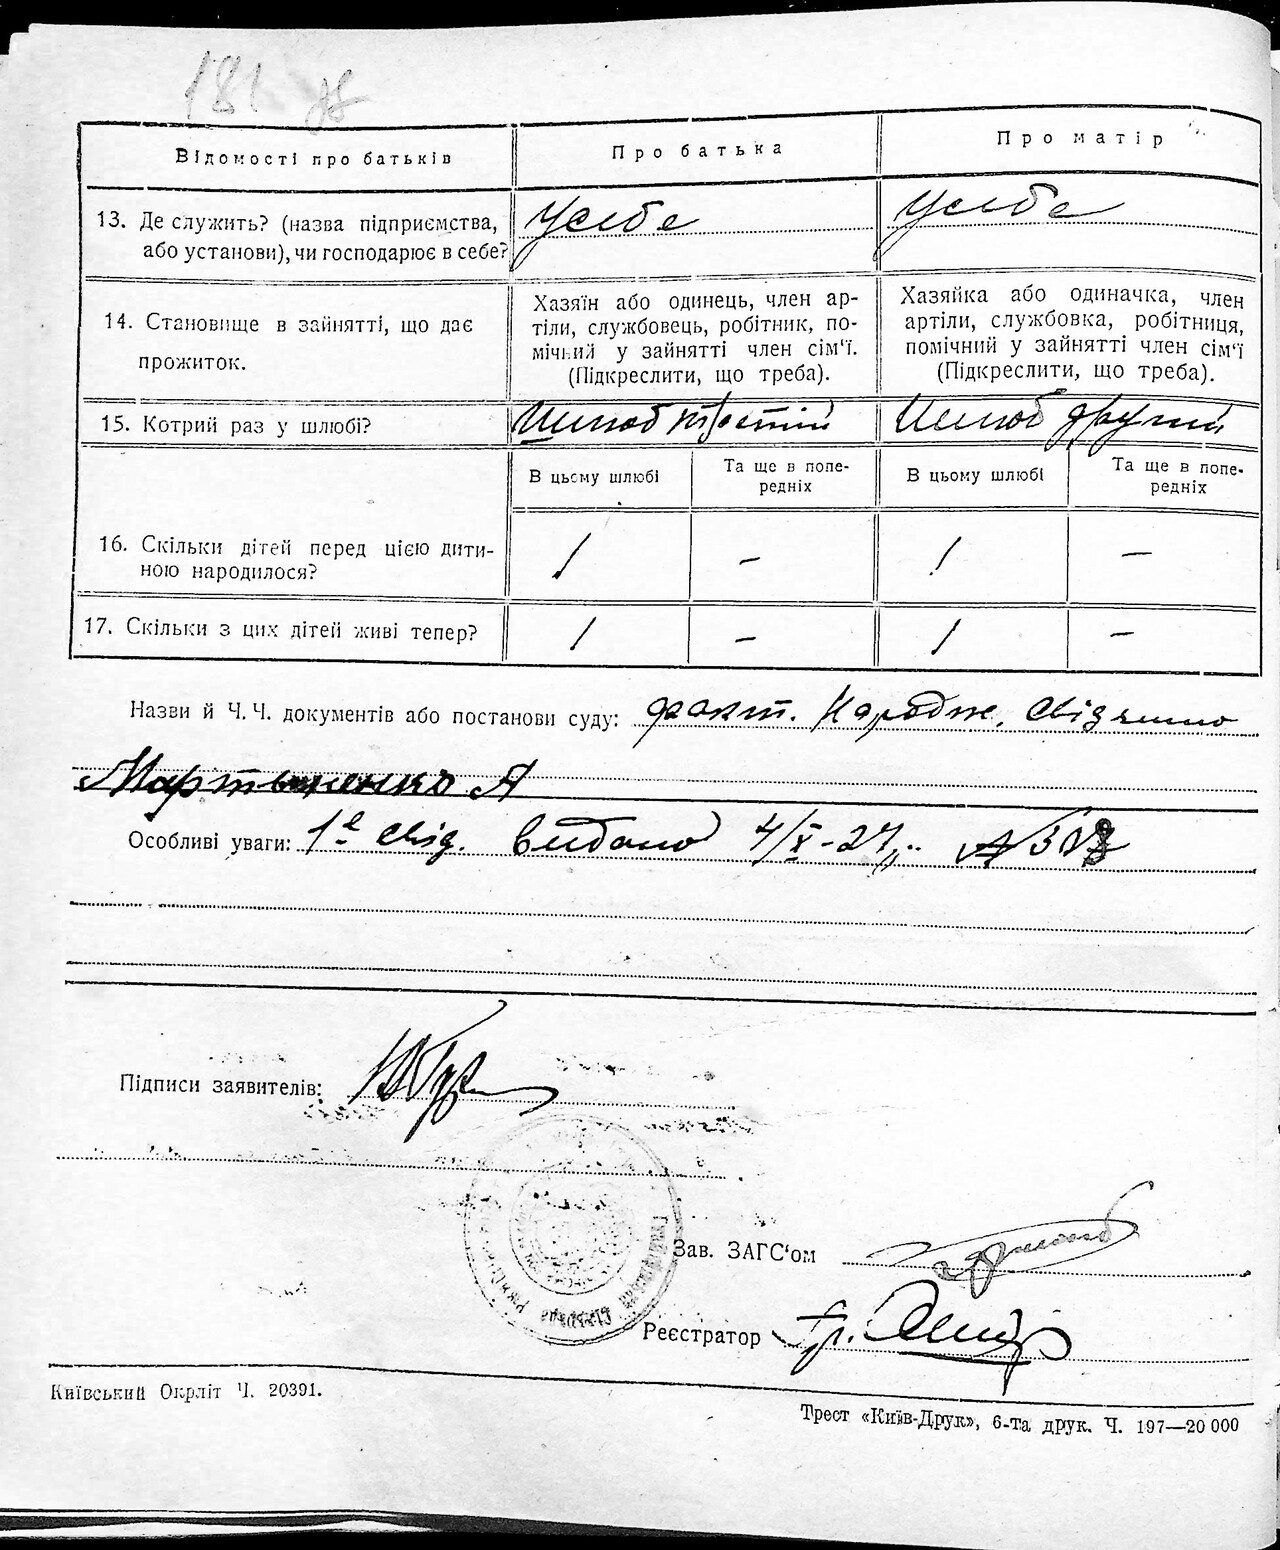 181
Відомості про батьків
Про батька
Про матір
13. Де служить? (назва підприємства, або установи), чи господарює в себе?
У себе
У себе
14. Становище в зайнятті, що дає прожиток.
Хазяїн або одинець, член ар-
тіли, службовець, робітник, по-
мічний у зайнятті член сім'ї.
(Підкреслити, що треба).
Хазяйка або одиначка, член
артіли, службовка, робітниця,
помічний у зайнятті член сім'ї
(Підкреслити, що треба).
15. Котрий раз у шлюбі?
Шлюб третій
Шлюб другий
В цьому шлюбі
Та ще в попе-
редніх
В цьому шлюбі
Та ще в попе-
редніх
16. Скільки дітей перед цією дити-
ною народилося?
1 - 1 -
17. Скільки з цих дітей живі тепер?
1 - 1 -
Назви й Ч. Ч. документів або постанови суду: факт. Народж.
Мартыненко А
Особливі уваги: 1е свід. видано 4/X-27
Підписи заявителів:
Зав. ЗАГС'ом
Реєстратор
Київський Окрліт Ч. 20391.
Трест «Київ-Друк», 6-та друк. Ч. 197—20 000